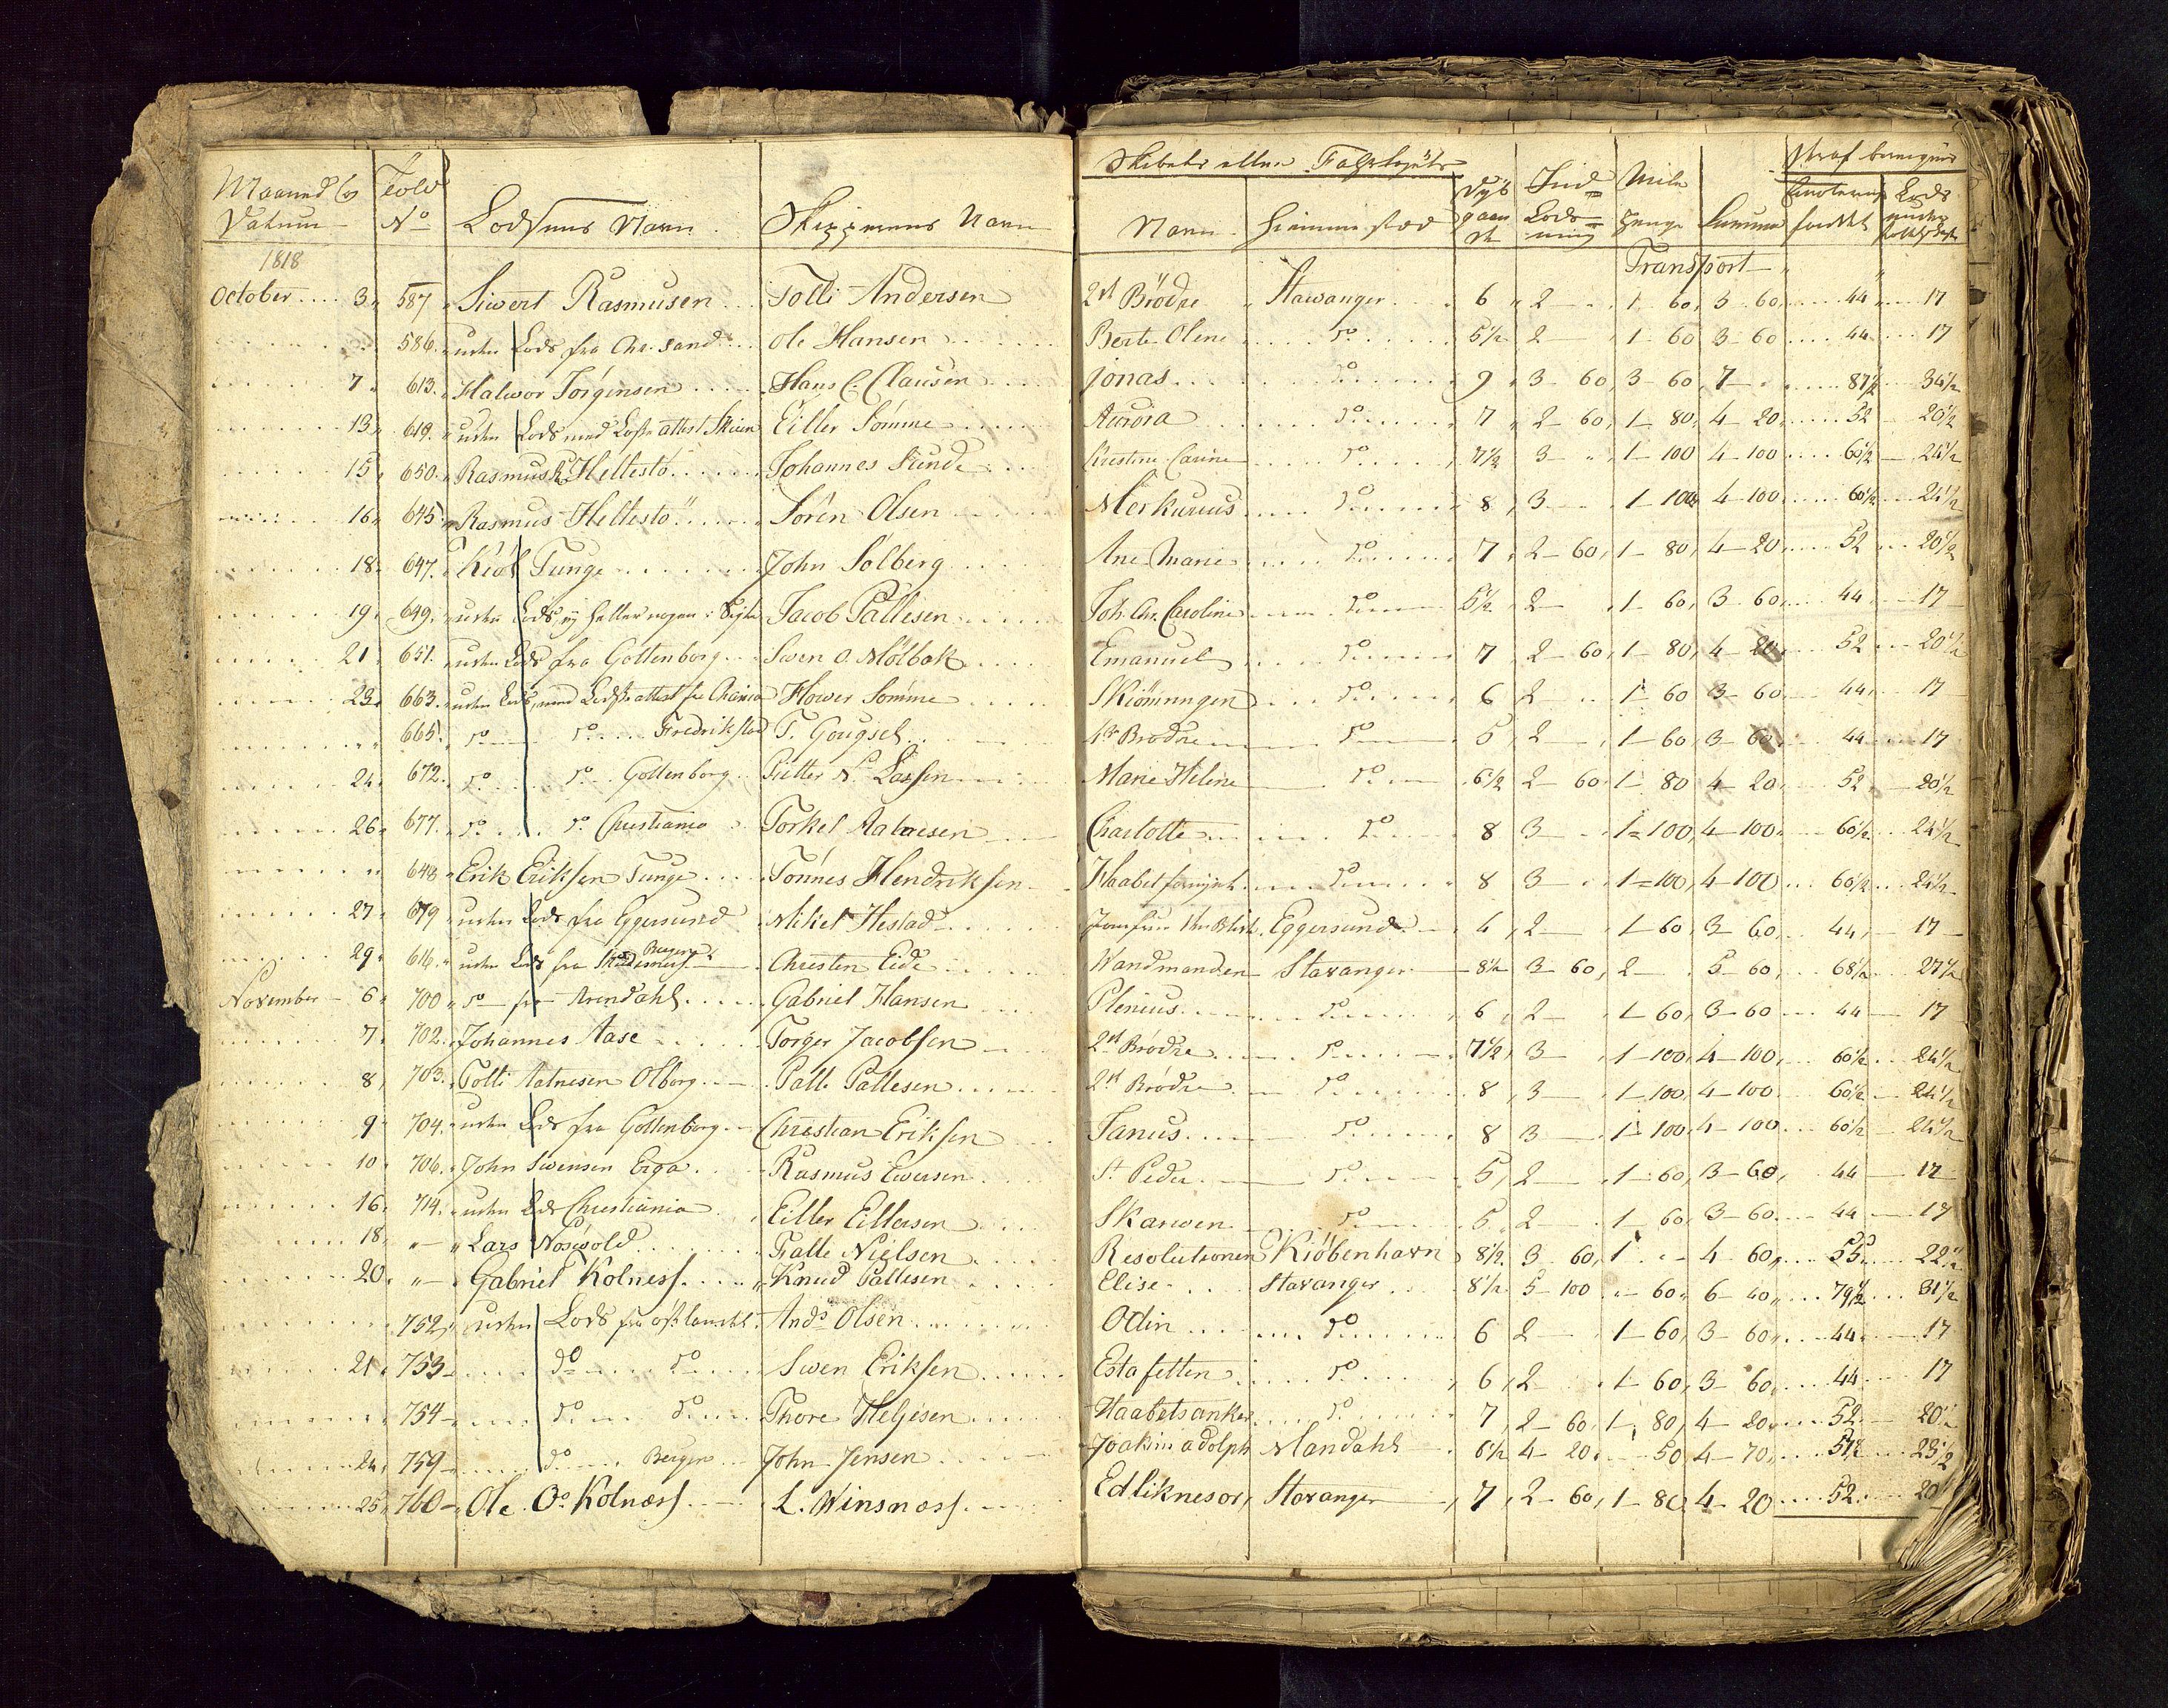 Maaned og Datum Told No Lodsens Navn Skipperens Navn
Skibets eller Fahrtøiets
Navn Hiemmestæd Dybgaaende Ind Lodsning Mile Penge Summa
1818
Transport
October 3 587 Siwert Rasmusen Tolli Andersen 2de Brödre Stawanger 6 2 1 60 3 60 44 17
586 uden Lods fra Chr. sand Ole Hansen Berte Olene do 5½ 2 1 60 3 60 44 17
7 613 Halwor Jørgensen Hans C. Clausen Jonas do 9 3 60 3 60 7 87½ 34½
13 619 uden Lods med Lodse attest Skien Eiller Sömme Aurora do 7 2 60 1 80 4 20 52 20½
15 650 Rasmus Hellestö Johannes Sunde Christine Carine do 7½ 3 1 100 4 100 60½ 24½
16 645 Rasmus Hellestö Sören Olsen Merkurius do 8 3 1 100 4 100 60½ 24½
18 647 Kiöl Tunge John Solberg Ane Marie do 7 2 60 1 80 4 20 52 20½
19 649 uden Lods ej heller nogen i Sigte Jacob Pallesen Joh. Chr. Caroline do 5½ 2 1 60 3 60 44 17
21 651 uden Lods fra Gottenborg Swen O. Mølbak Emanuel do 7 2 60 1 80 4 20 52 20½
23 663 uden Lods, med Lodse attest fra Chania Hower Sömme Skiönningen do 6 2 1 60 3 60 44 17
665 do do Fredrikstad T. Gougsel 4re Brodre do 5 2 1 60 3 60 44 17
24 672 do do Gottenborg Pitter N. Lassen Marie Helene do 6½ 2 60 1 80 4 20 52 20½
26 677 do do Christiania Torkel Aatnesen Charlotte do 8 3 1 100 4 100 60½ 24½
648 Erik Eriksen Tunge Tönnes Hendriksen Haabet do 8 3 1 100 4 100 60½ 24½
27 679 uden Lods fra Eggersund Mikel Hestad Eggersund 4 2 1 60 3 60 44 17
29 616 uden Lods fra Bergen Christen Eide Wandmanden Stavanger 8½ 3 60 2 5 60 68½ 27½
November 6 700 do fra Arendahl Gabriel Hansen Plenius do 6 2 1 60 3 60 44 17
7 702 Johannes Aase Torger Jacobsen 2de Brödre do 7½ 3 1 100 4 100 60½ 24½
8 703 Tolli Aatnesen Olborg Palle Pallesen 2de Brödre do 8 3 1 100 4 100 60½ 24½
9 704 uden Lods fra Gottenborg Christian Eriksen Janus do 8 3 1 100 4 100 60½ 24½
10 706 John Swensen Erga Rasmus Ewersen St Peder do 5 2 1 60 3 60 44 17
16 714 uden Lods Christiania Eiller Eillersen Skarwen do 5 2 1 60 3 60 44 17
18 Lars Nösewold Falle Nielsen Resolutionen Kiöbenhavn 8½ 3 60 1 4 60 55 22
20 Gabriel Kolness Knud Pallesen Elise Stavanger 8½ 5 100 60 6 40 79½ 31½
752 uden Lods fra östlandet Ands Olsen Odin do 6 2 1 60 3 60 44 17
21 753 do do Swen Eriksen Estafetten do 6 2 1 60 3 60 44 17
754 do do Thore Helgesen Haabets anker do 7 2 60 1 80 4 20 52 20
24 759 do Bergen John Jensen Joakim adolph Mandahl 6½ 4 20 50 4 70 57½ 23½
25 760 Ole Os Kolness L. Winsness Stavanger 7 2 60 1 80 4 20 52 20